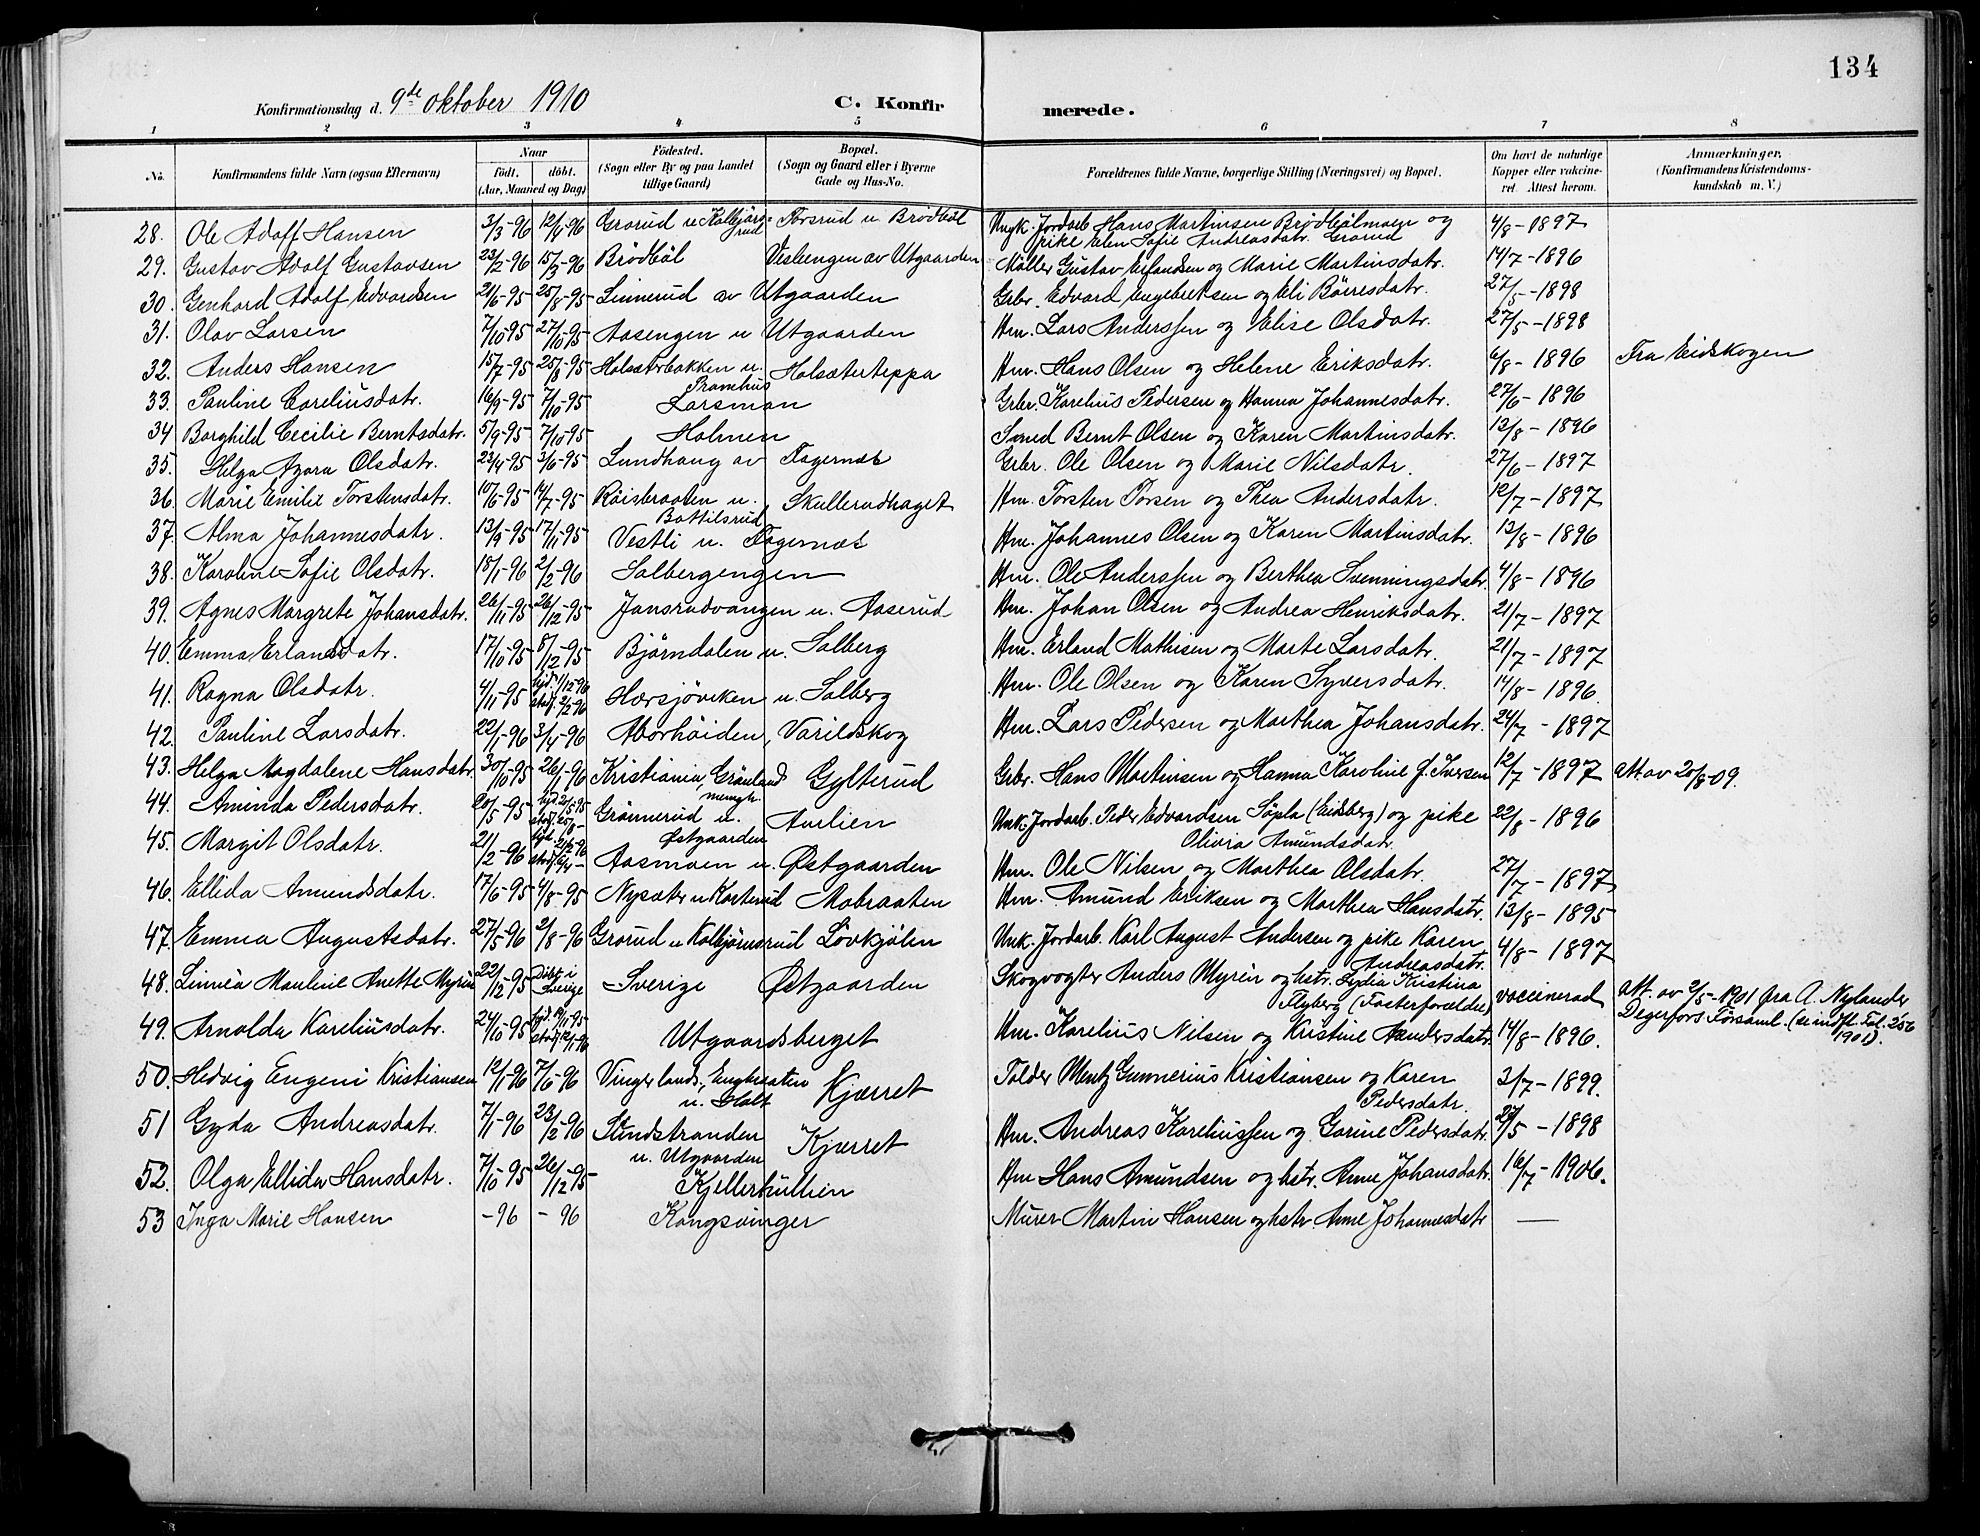 134
Konfirmationsdag d. 9de oktober 1910 C. Konfirmerede.
1 2 3 4 5 6 7 8
No. Konfirmandens fulde Navn (ogsaa Efternavn) Naar födt. döbt. (Aar, Maaned og Dag) Födested. (Sogn eller By og paa Landet tillige Gaard) Bopæl. (Sogn og Gaard eller i Byerne Gade og Hus-No. Forældrenes fulde Navne, borgerlige Stilling (Næringsvei) og Bopæl. Om havt de naturlige Kopper eller vakcineret. Attest herom. Anmærkninger. (Konfirmandens Kristendomskundskab m. V.)
28. Ole Adolf Hansen 3/3-96 12/4-96 Grorud u Kolbjörnsrud Forsrud u Brödböl Ungk. Jordarb Hans Martinsen Brödbölmoen og pike Elen Sofie Andreasdatr. Grorud 4/8-1897
29. Gustav Adolf Gustavsen 23/2-96 15/3-96 Brödböl Vesleengen av Utgaarden Möller Gustav Erlandsen og Marie Martinsdatr. 14/7-1896
30. Genhard Adolf Edvardsen 21/6-95 25/8-95 Linnerud av Utgaarden Grbr. Edvard Engebretsen og Eli Börresdatr. 27/5-1898
31. Olav Larsen 7/10-95 27/10-95 Aasengen u Utgaarden Hm. Lars Anderssen og Elise Olsdatr. 27/5-1898
32. Anders Hansen 15/7-95 25/8-95 Holsæterbakken u. Pramhus Holsæterteppa Hm. Hans Olsen og Helene Eriksdatr. 6/8-1896 Fra Eidskogen
33. Pauline Careliusdatr. 16/9-95 7/10-95 Larsmon Grbr. Karelius Pedersen og Hanna Johannesdatr. 27/6-1896
34 Borghild Cecilie Berntsdatr. 5/9-95 7/10-95 Holmen Smed Bernt Olsen og Karen Martinsdatr. 13/8-1896
35. Helga Azora Olsdatr. 23/4-95 3/6-95 Lundhaug av Fagernæs Grbr. Ole Olsen og Marie Nilsdatr. 27/6-1897
36. Marie Emilie Torstensdatr. 10/6-95 14/7-95 Röisbraaten u. Bottilsrud Skullerudhaget Hm. Torsten Torsen og Thea Andersdatr. 12/7-1897
37. Alma Johannesdatr. 13/9-95 17/11-95 Vestli u. Fagernæs Hm. Johannes Olsen og Karen Martinsdatr. 13/8-1896
38. Karoline Sofie Olsdatr. 18/1-96 2/2-96 Solbergengen Hm. Ole Anderssen og Berthea Svenningsdatr. 4/8-1896
39. Agnes Margrete Johansdatr. 26/11-95 26/12-95 Jansrudvangen u. Aaserud Hm. Johan Olsen og Andrea Henriksdatr. 21/7-1897
40. Emma Erlandsdatr. 17/10-95 8/12-95 Björndalen u. Solberg Hm. Erland Mathisen og Marte Larsdatr. 21/7-1897
41. Ragna Olsdatr. 4/11-95 stadf. 2/2-96 Hærsjöviken u. Solberg Hm. Ole Olsen og Karen Syversdatr. 14/8-1896.
42. Pauline Larsdatr. 22/1-96 3/4-96 Aborhöiden, Varildskog Hm. Lars Pedersen og Marthea Johansdatr. 24/7-1897
43. Helga Magdalene Hansdatr. 30/10-95 26/1-96 Kristiania, Grönland mengh. Gylterud Grbr. Hans Martinsen og Hanna Karoline f. Iversen 12/7-1897 att av 20/8 09.
44. Aminda Pedersdatr. 20/5-95 Grönnerud u. Østgaarden Aurlien Unk. Jordarb. Peder Edvardsen Söpla (Eidsberg) og pike Olivia Amundsdatr. 22/8-1896
45. Margit Olsdatr. 21/2-96 Aasmoen u. Østgaarden Hm. Ole Nilsen og Marthea Olsdatr. 27/7-1897
46. Ellida Amundsdatr. 17/6-95 4/8-95 Nysæter u Korterud Mobraaten Hm. Amund Eriksen og Marthea Hansdatr. 13/8-1895
47. Emma Augustsdatr. 27/5-96 2/8-96 Grorud u Kolbjörnsrud Lövkjölen Unk. Jordarb. Karl August Andersen og pike Karen Andreasdatr. 4/8-1897
48. Linnéa Mauline Anette Myrén 22/12-95 Döbt i Sverige Sverige Østgaarden Skogvogter Anders Myrén og hstr. Lydia Kristina Flyberg (Fosterforældre) vaccinerad att. av 2/5-1901 fra A. Nylander Degerfors Församl. (se indfl. Fol. 256 1901).
49. Arnolda Kareliusdatr. 24/10-95 Utgaardsberget Hm. Karelius Nilsen og Kristine Andersdatr. 14/8-1896.
50. Hedvig Engeni Kristiansen 12/1-96 7/6-96 Vinger lands., Engbraaten u. Holt Kjærret Tolder Mentz Gunnerius Kristiansen og Karen Pedersdatr. 3/7-1899.
51 Gyda Andreasdatr. 7/1-96 23/2-96 Sundstranden u. Utgaarden Kjærret Hm. Andreas Kareliussen og Gorine Pedersdatr. 27/5-1898
52. Olga Ellida Hansdatr. 7/10-95 26/12-95 Kjellerhullien Hm Hans Amundsen og hstr. Anne Johansdatr. 16/7-1906.
53 Inga Marie Hansen -96 -96 Kongsvinger Murer Martin Hansen og hstr Anne Johannesdatr —